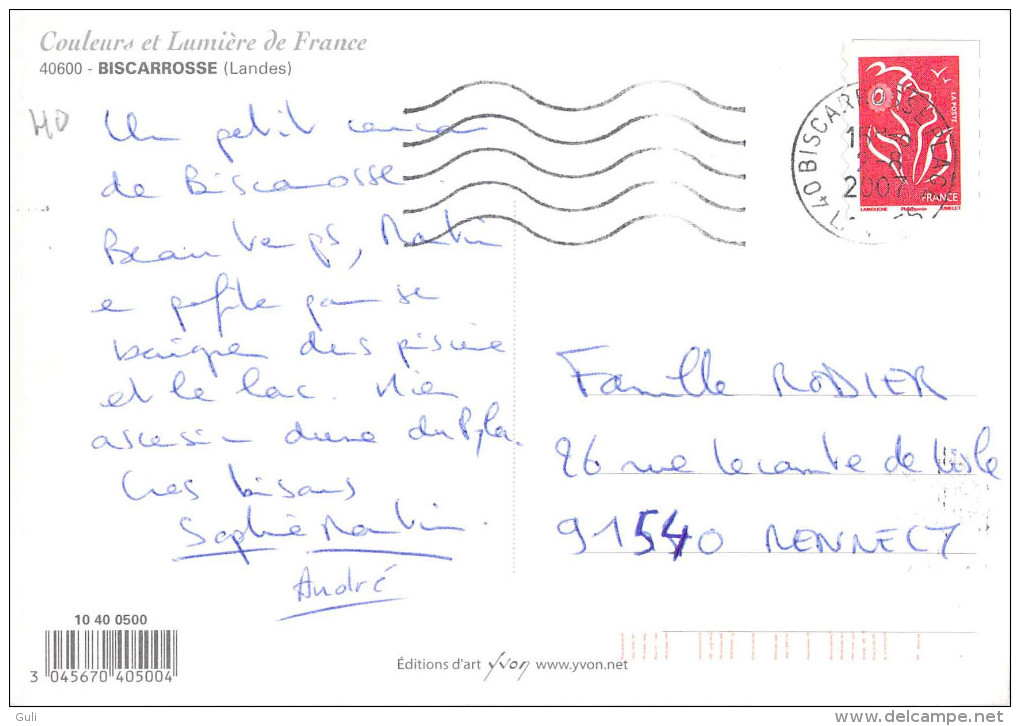 Couleurs et Lumière de France
40600 - BISCARROSSE (Landes)
40
Un petit coucou
de Biscarosse.
Beau temps, Martin
en profite pour se
baigner dans piscine
et le lac. Hier
ascension dune du Pyla.
Gros bisous
Sophie Martin.
André
10 40 0500
3 045670 405004
Éditions d'art yvon www.yvon.net
40 BISCARROSSE
2007
LA POSTE
FRANCE
LAMOUCHE
Famille RODIER
26 rue Leconte de Lisle
91540 MENNECY
Guli
delcampe.net